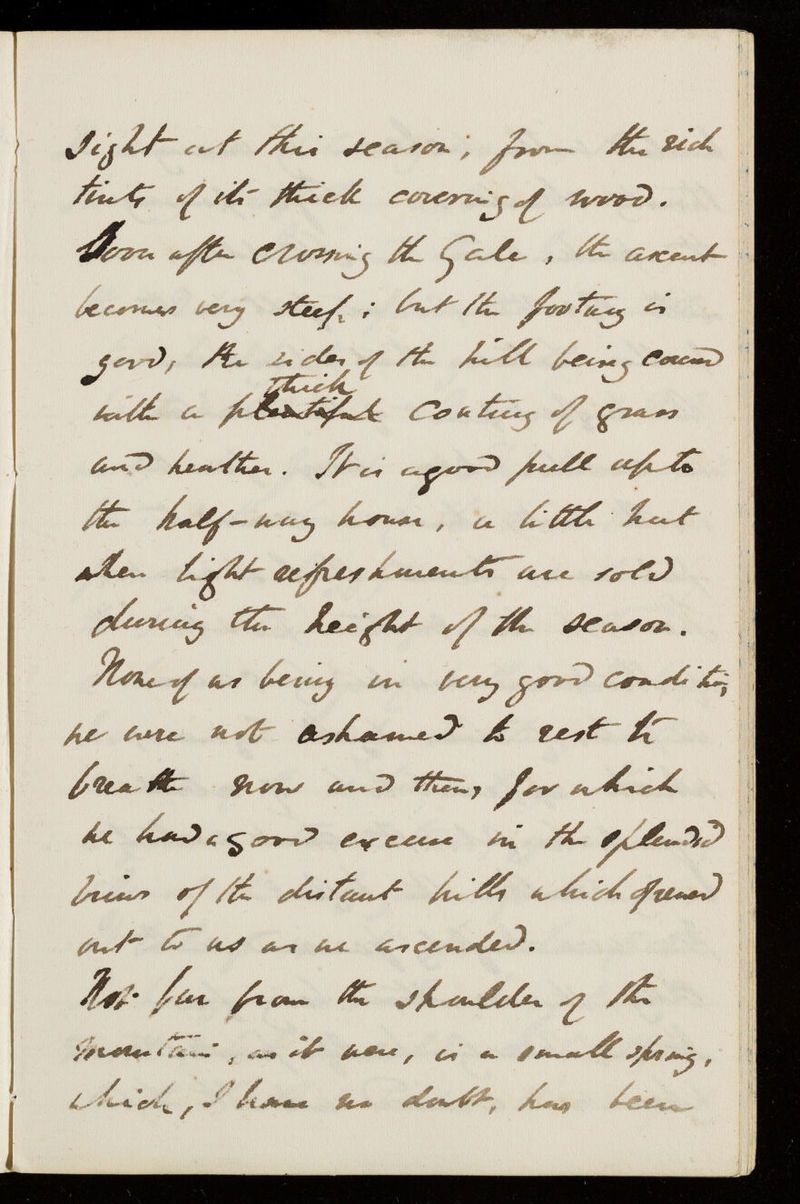 sight at this season, from the rich
tints of its thick covering of wood.
Soon after crossing the Gale, the ascent
becomes very steep; but the footing is
good, the sides of the hill being covered
thick
with a plentiful coating of grass
and heather. It is a good pull up to
the half-way house, a little hut
when light refreshments are sold
during the height of the season.
None of us being in very good condition,
we were not ashamed to rest &
breathe now and then, for which
we had a good excuse in the splendid
views of the distant hills which opened
out to us as we ascended.
Not far from the shoulder of the
mountain, as it were, is a small spring,
which, I have no doubt, has been